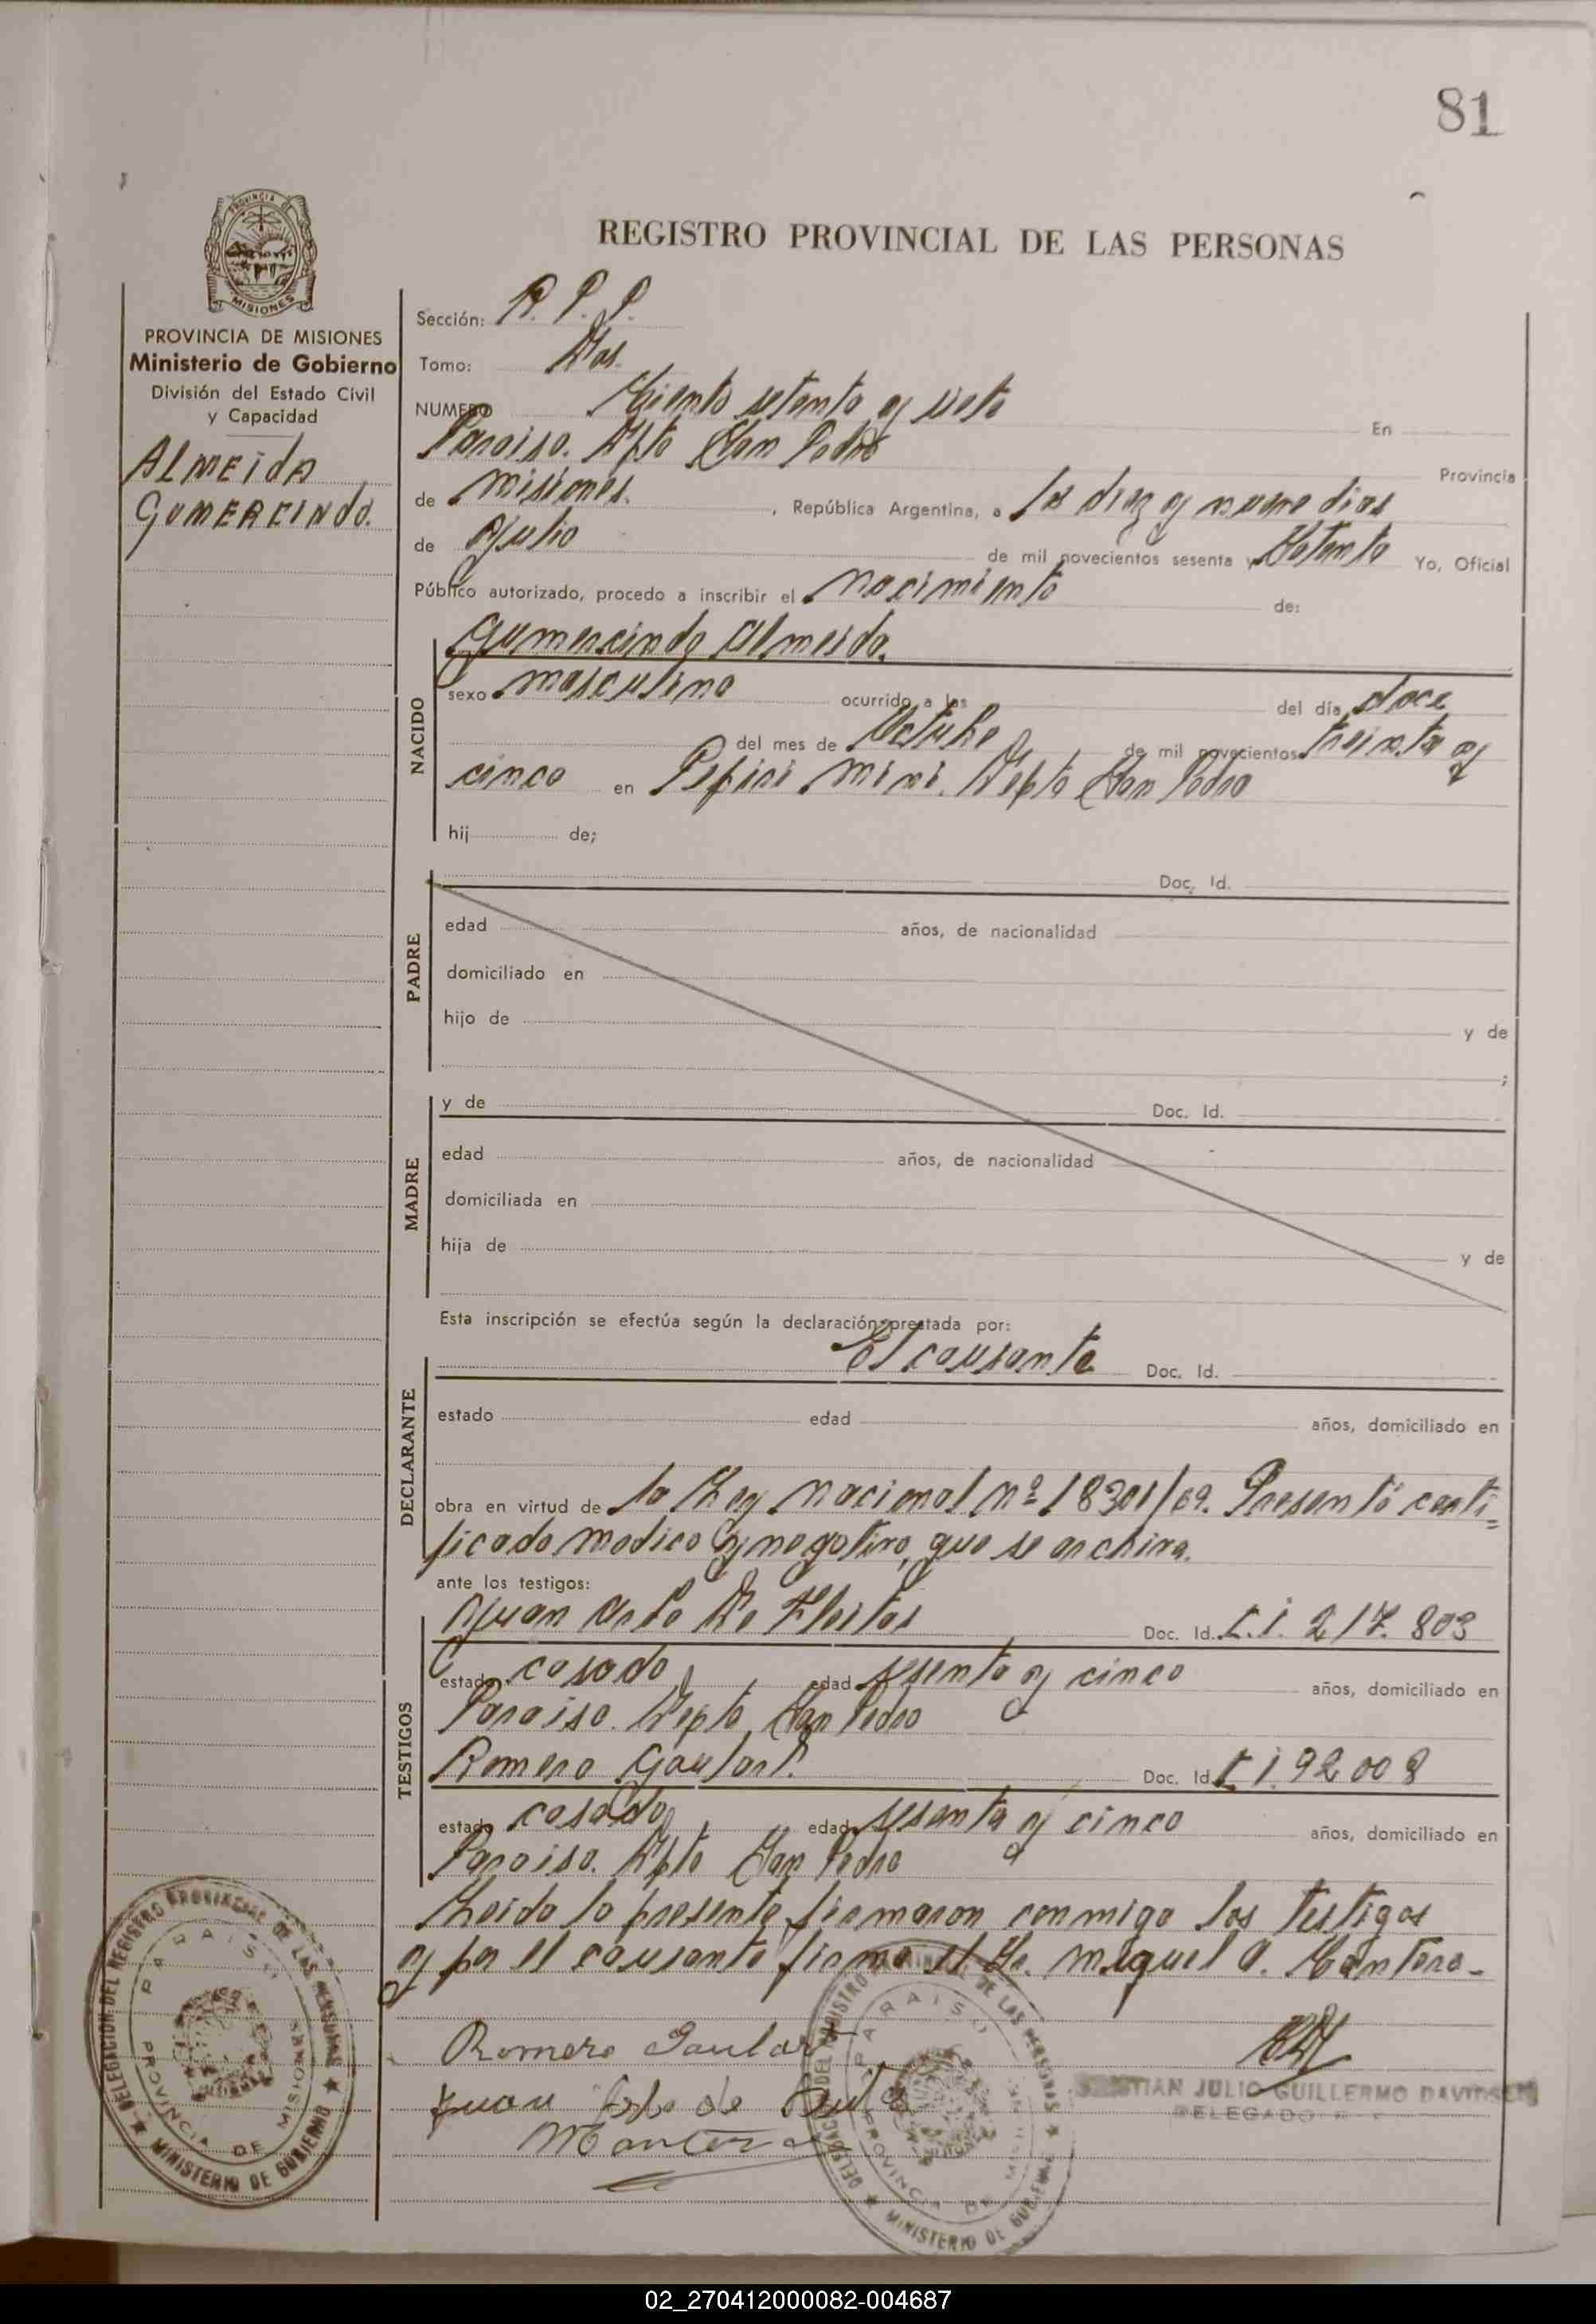 81
PROVINCIA DE
MISIONES
REGISTRO PROVINCIAL DE LAS PERSONAS
PROVINCIA DE MISIONES
Ministerio de Gobierno
División del Estado Civil
y Capacidad
ALMEIDA
GUMERCINDO.
Sección: R. P. P.
Tomo: Dos.
NUMERO Ciento setenta y siete En
Paraiso. Dpto San Pedro Provincia
de Misiones. , República Argentina, a los diez y nueve dias
de Julio de mil novecientos sesenta y Setenta Yo, Oficial
Público autorizado, procedo a inscribir el nacimiento de:
NACIDO
Gumercindo Almeida.
sexo masculino ocurrido a las del día doce
del mes de Octubre de mil novecientos treinta y
cinco en Pepiri Mini. Depto San Pedro
hij de;
PADRE
Doc. Id.
edad años, de nacionalidad
domiciliado en
hijo de y de
;
MADRE
y de Doc. Id.
edad años, de nacionalidad
domiciliada en
hija de y de
Esta inscripción se efectúa según la declaración prestada por:
DECLARANTE
El causante Doc. Id.
estado edad años, domiciliado en
obra en virtud de la Ley Nacional Nº 18301/69. Presentó certi=
ficado medico y negativo, que se archiva.
ante los testigos:
TESTIGOS
Juan De Doc. Id. C.I. 217.803
estado casado edad sesenta y cinco años, domiciliado en
Paraiso. Depto San Pedro
Romero Goulart. Doc. Id. C.I. 92008
estado casado edad sesenta y cinco años, domiciliado en
Paraiso. Dpto San Pedro
Leida la presente firmaron conmigo los testigos
y por el causante firma el Sr. Miguel A. Cantero-
Romero Goulart
Juan de
MCantero
CRISTIAN JULIO GUILLERMO DAVIDSEN
DELEGADO
DELEGACION DEL REGISTRO PROVINCIAL DE LAS PERSONAS
PARAISO
PROVINCIA DE MISIONES
MINISTERIO DE GOBIERNO
DELEGACION DEL REGISTRO PROVINCIAL DE LAS PERSONAS
PARAISO
PROVINCIA DE MISIONES
MINISTERIO DE GOBIERNO
02_270412000082-004687